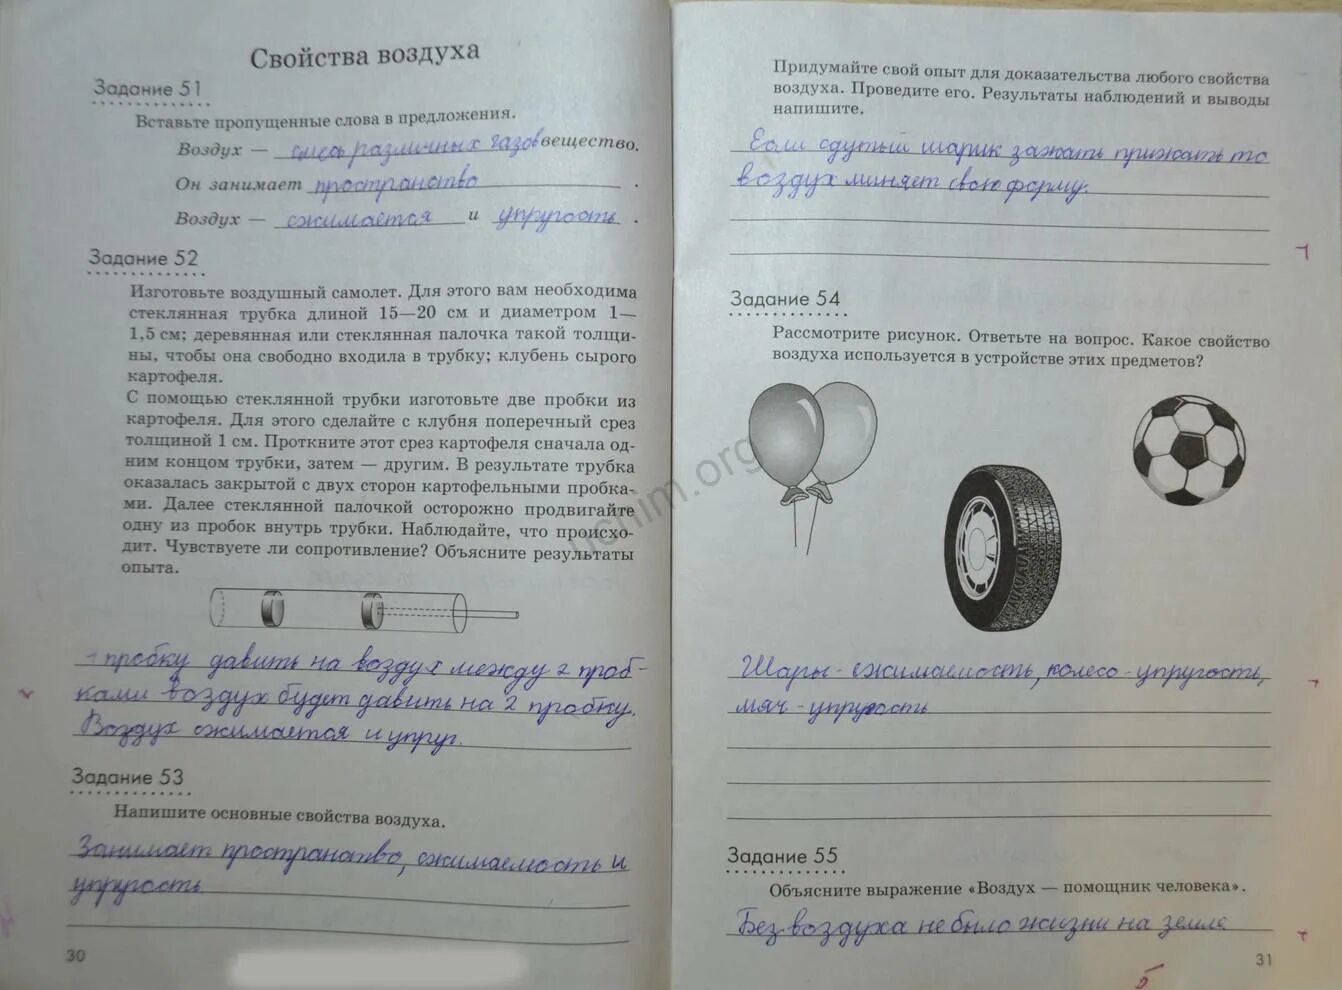 Свойства воздуха
Задание 51
Вставьте пропущенные слова в предложения.
Воздух — смесь различных газов вещество.
Он занимает пространство .
Воздух — сжимается и упругость .
Задание 52
Изготовьте воздушный самолет. Для этого вам необходима
стеклянная трубка длиной 15—20 см и диаметром 1—
1,5 см; деревянная или стеклянная палочка такой толщи-
ны, чтобы она свободно входила в трубку; клубень сырого
картофеля.
С помощью стеклянной трубки изготовьте две пробки из
картофеля. Для этого сделайте с клубня поперечный срез
толщиной 1 см. Проткните этот срез картофеля сначала од-
ним концом трубки, затем — другим. В результате трубка
оказалась закрытой с двух сторон картофельными пробка-
ми. Далее стеклянной палочкой осторожно продвигайте
одну из пробок внутрь трубки. Наблюдайте, что происхо-
дит. Чувствуете ли сопротивление? Объясните результаты
опыта.
пробку давить на воздух между 2 проб-
ками воздух будет давить на 2 пробку.
Воздух сжимается и упруг.
Задание 53
Напишите основные свойства воздуха.
Занимает пространство, сжимаемость и
упругость
30
Придумайте свой опыт для доказательства любого свойства
воздуха. Проведите его. Результаты наблюдений и выводы
напишите.
Если сдутый шарик зажать прижать то
воздух миняет свою форму.
Задание 54
Рассмотрите рисунок. Ответьте на вопрос. Какое свойство
воздуха используется в устройстве этих предметов?
Шары - сжимаемость, колесо - упругость,
мяч - упругость
Задание 55
Объясните выражение «Воздух — помощник человека».
Без воздуха не было жизни на земле
31
5
uchim.org